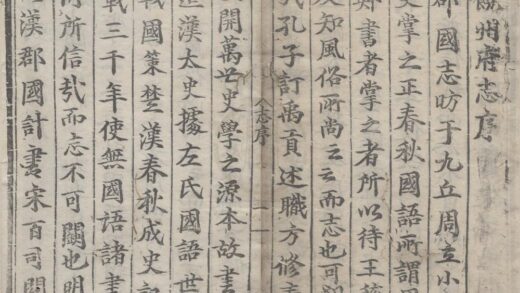 州府志序
郡國志昉于九丘周立小
史掌之正春秋國語所謂
鄭書者掌之者所以待王
知風俗所尚云云而志也可
代孔子訂禹貢述職方修
志序
一
開萬世史學之源本故書
漢太史據左氏國語世
戰國策楚漢春秋成史記
三千年使無國語諸書
何所信哉而志不可闕也明
漢郡國計書宋百司